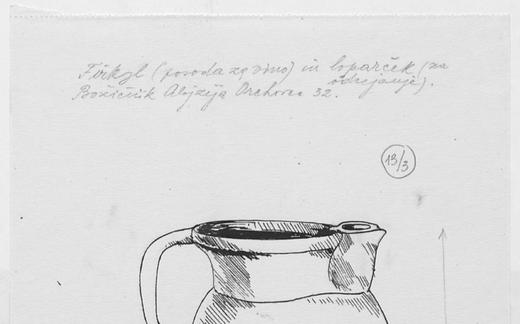 Firkzl (posoda za vino) in loparček (za
odcejanje).
Božičnik Alojzija Orehovec 32.
13/3